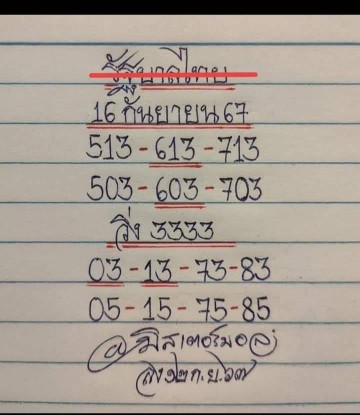 รัฐบาลไทย
16 กันยายน 67
513-613-713
503-603-703
วิ่ง 3333
03-13-73-83
05-15-75-85
@มิสเตอร์มอส
ลง ๑๒ ก.ย. ๖๗